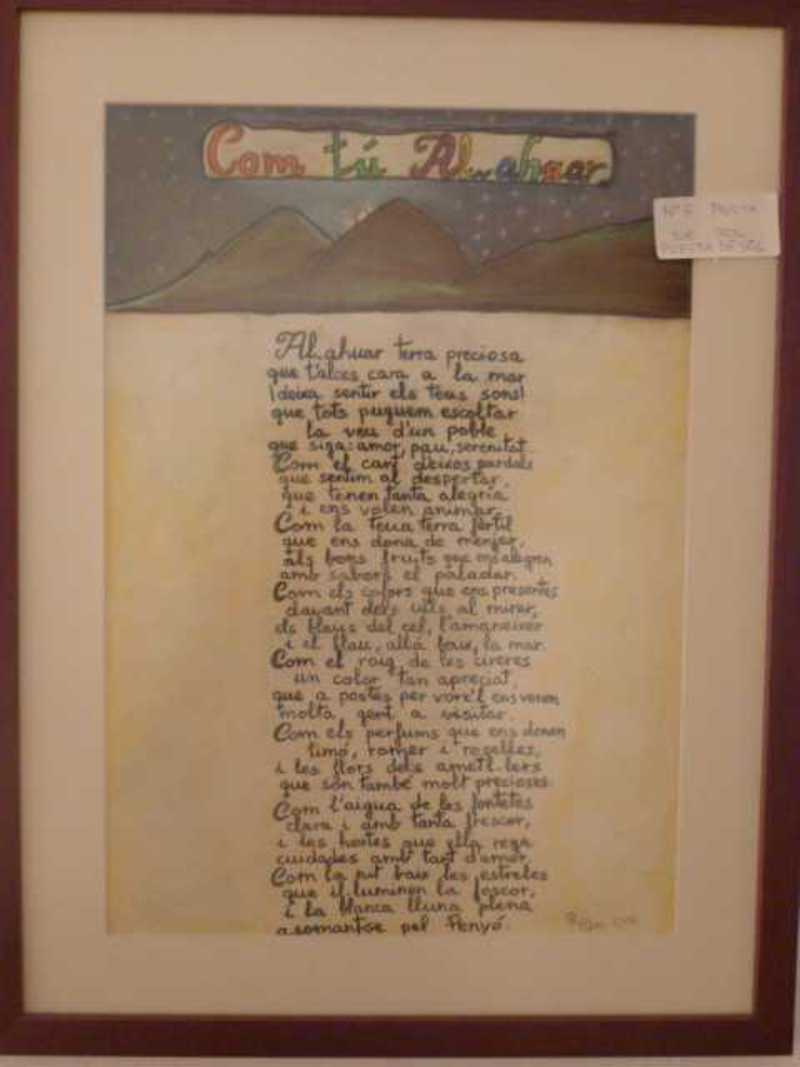 Com tú Al..ahuar
Nº 5
PUESTA DE SOL
Al.ahuar terra preciosa
que t'alces cara a la mar
¡deixa sentir els teus sons!
que tots puguem escoltar
la veu d'un poble
que siga: amor, pau, serenitat.
Com el cant deixos pardals
que sentim al despertar,
que tenen tanta alegria
i ens volen animar.
Com la teua terra fèrtil
que ens dona de menjar,
als bons fruits que ens alegren
amb sabors el paladar.
Com els colors que ens presentes
davant dels ulls al mirar,
els blaus del cel, l'amaneixer
i el blau, allá baix, la mar.
Com el roig de les cireres
un color tan apreciat,
que a postes per vore'l ens venen
molta gent a visitar.
Com els perfums que ens donen
timó, romer i roselles,
i les flors dels ametl.lers
que són també molt precioses.
Com l'aigua de les fontetes
clara i amb tanta frescor,
i les hortes que ella rega
cuidades amb tant d'amor.
Com la nit baix les estreles
que il.luminen la foscor,
i la blanca lluna plena
asomantse pel Penyó.